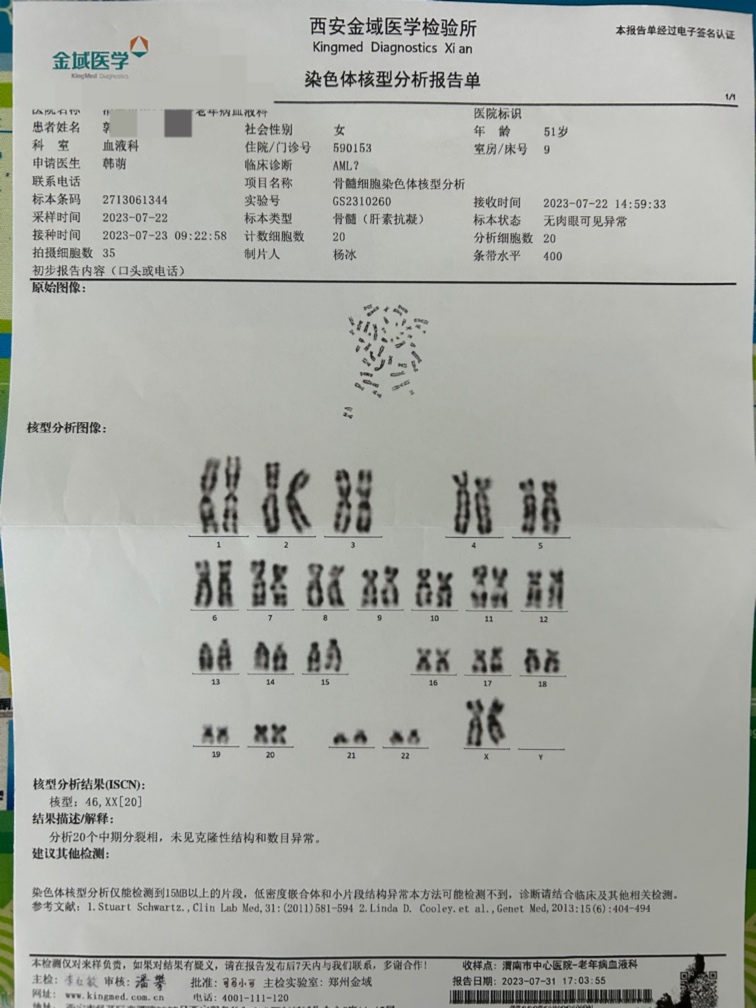 金域医学
KingMed Diagnostics
西安金域医学检验所
Kingmed Diagnostics Xi an
本报告单经过电子签名认证
染色体核型分析报告单
1/1
医院名称 老年病血液科 医院标识
患者姓名 郭 社会性别 女 年 龄 51岁
科 室 血液科 住院/门诊号 590153 室房/床号 9
申请医生 韩萌 临床诊断 AML?
联系电话 项目名称 骨髓细胞染色体核型分析
标本条码 2713061344 实验号 GS2310260 接收时间 2023-07-22 14:59:33
采样时间 2023-07-22 标本类型 骨髓（肝素抗凝） 标本状态 无肉眼可见异常
接种时间 2023-07-23 09:22:58 计数细胞数 20 分析细胞数 20
拍摄细胞数 35 制片人 杨冰 条带水平 400
初步报告内容（口头或电话）
原始图像：
核型分析图像：
1 2 3 4 5
6 7 8 9 10 11 12
13 14 15 16 17 18
19 20 21 22 X Y
核型分析结果(ISCN)：
核型：46,XX[20]
结果描述/解释：
分析20个中期分裂相，未见克隆性结构和数目异常。
建议其他检测：
染色体核型分析仅能检测到15MB以上的片段，低密度嵌合体和小片段结构异常本方法可能检测不到，诊断请结合临床及其他相关检测。
参考文献：1.Stuart Schwartz.,Clin Lab Med,31:(2011)581-594 2.Linda D. Cooley.et al.,Genet Med,2013:15(6):404-494
本检测仅对来样负责，如果对结果有疑义，请在报告发布后7天内与我们联系，多谢合作！ 收样点：渭南市中心医院-老年病血液科
主检： 审核：潘攀 批准： 主检实验室：郑州金域 报告日期：2023-07-31 17:03:55
网址： www.kingmed.com.cn 电话：4001-111-120